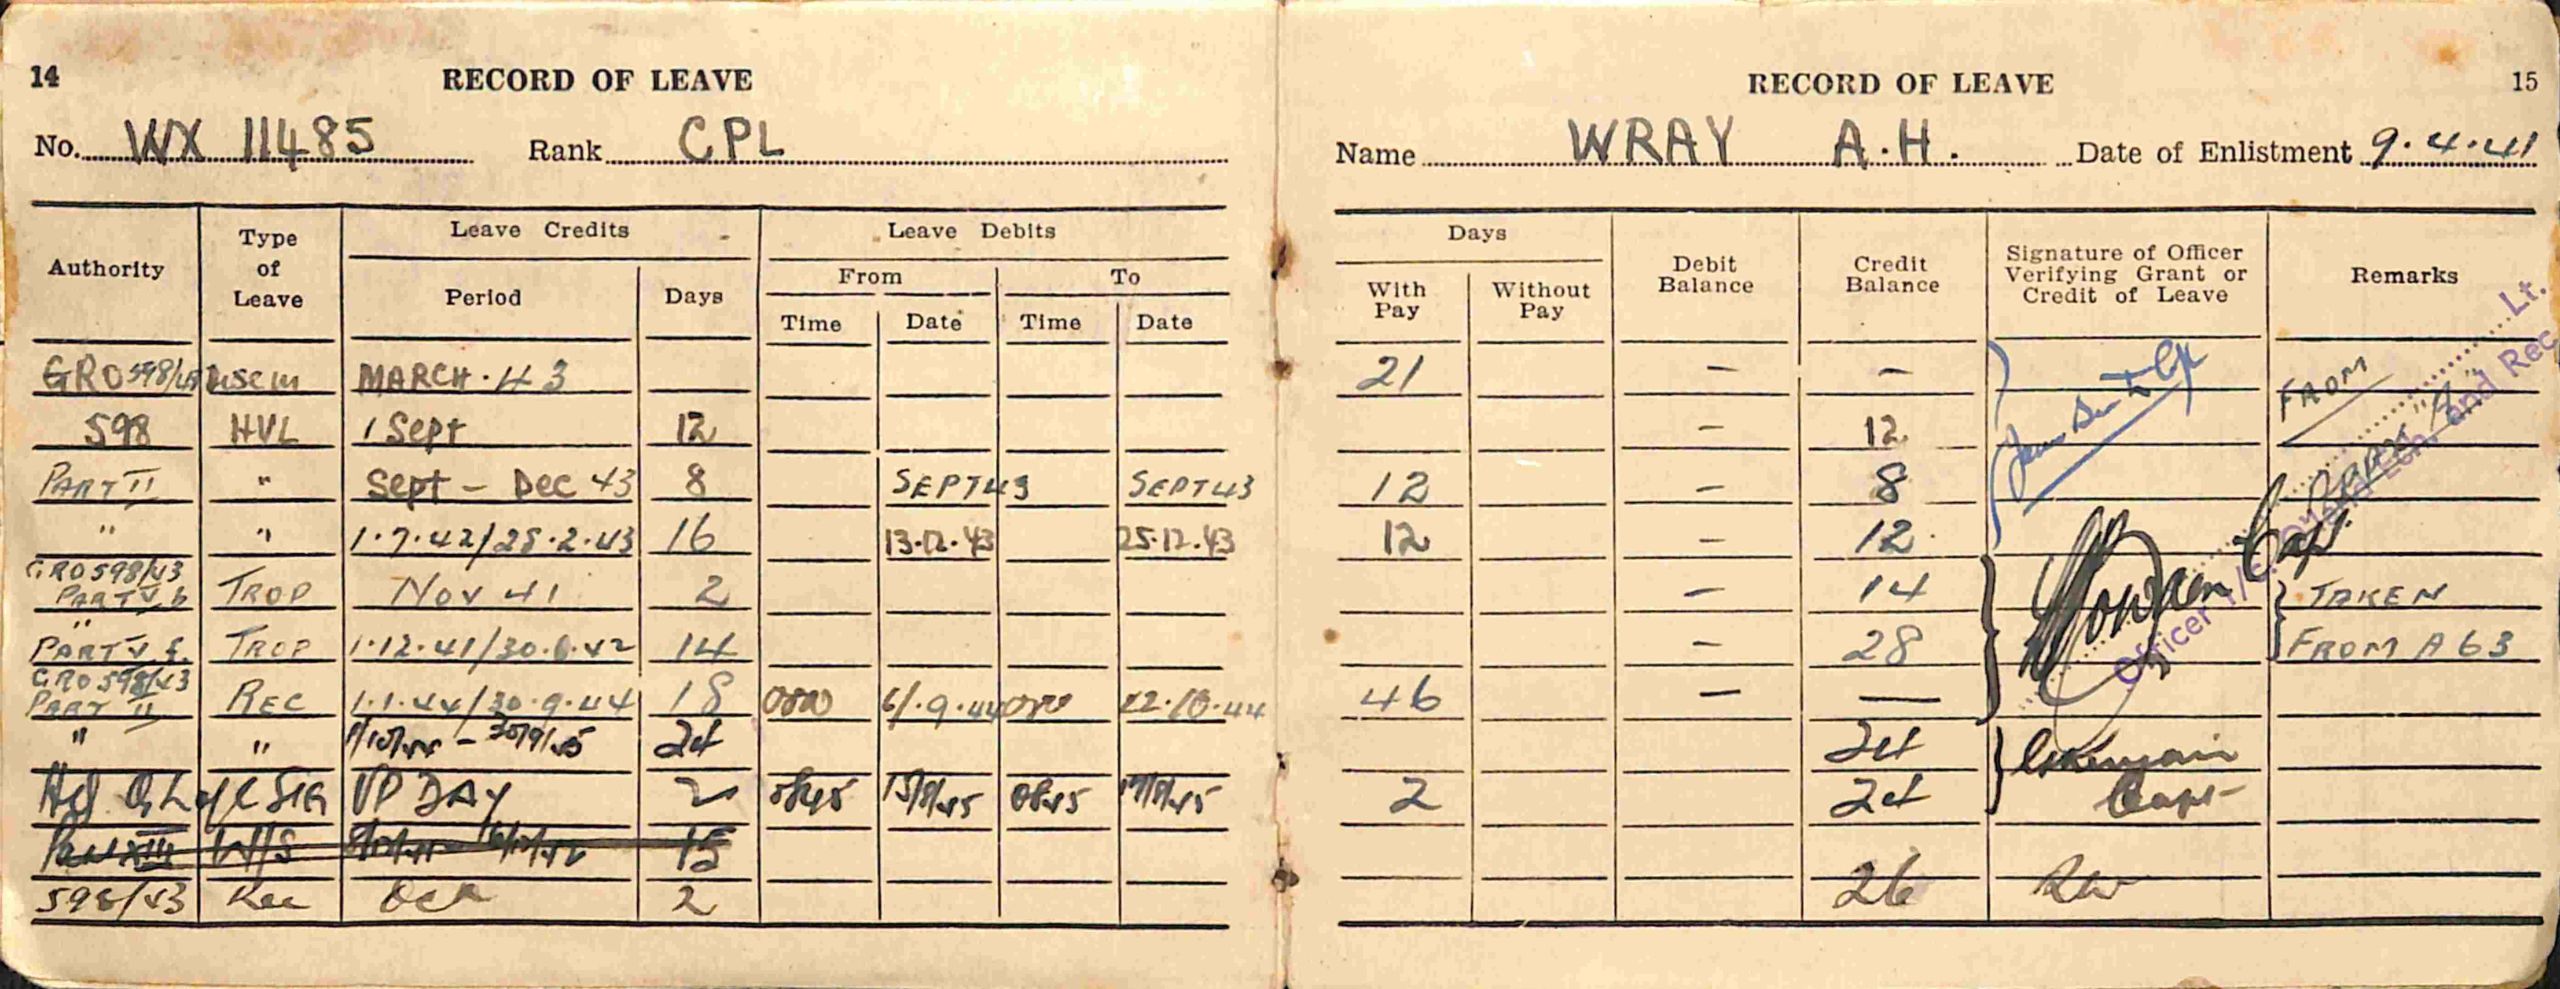 14
RECORD OF LEAVE
No. WX 11485 Rank CPL
Authority
Type of Leave
Leave Credits
Period
Days
Leave Debits
From
To
Time
Date
Time
Date
GRO 598/43 Disem MARCH. 43
598 HVL 1 Sept 12
PART II " Sept - Dec 43 8 SEPT 43 SEPT 43
" " 1.7.42/28.2.43 16 13.12.43 25.12.43
GRO 598/43
PART V b TROP Nov 41 2
"
PART V f. TROP 1.12.41/30.6.42 14
GRO 598/43
PART II REC 1.1.44/30.9.44 18 0800 6/.9.44 22.10.44
" " 1/10/44 - 30/9/45 24
VP DAY 2 0845 15/8/45 0845 17/8/45
W/S 15
598/43 Rec Oct 2
RECORD OF LEAVE
15
Name WRAY A.H. Date of Enlistment 9.4.41
Days
With Pay
Without Pay
Debit Balance
Credit Balance
Signature of Officer Verifying Grant or Credit of Leave
Remarks
21 - - FROM
- 12
12 - 8
12 - 12
- 14 TAKEN
- 28 FROM A 63
46 - -
24
2 24 Capt
26
Lt.
Officer i/c
and Rec